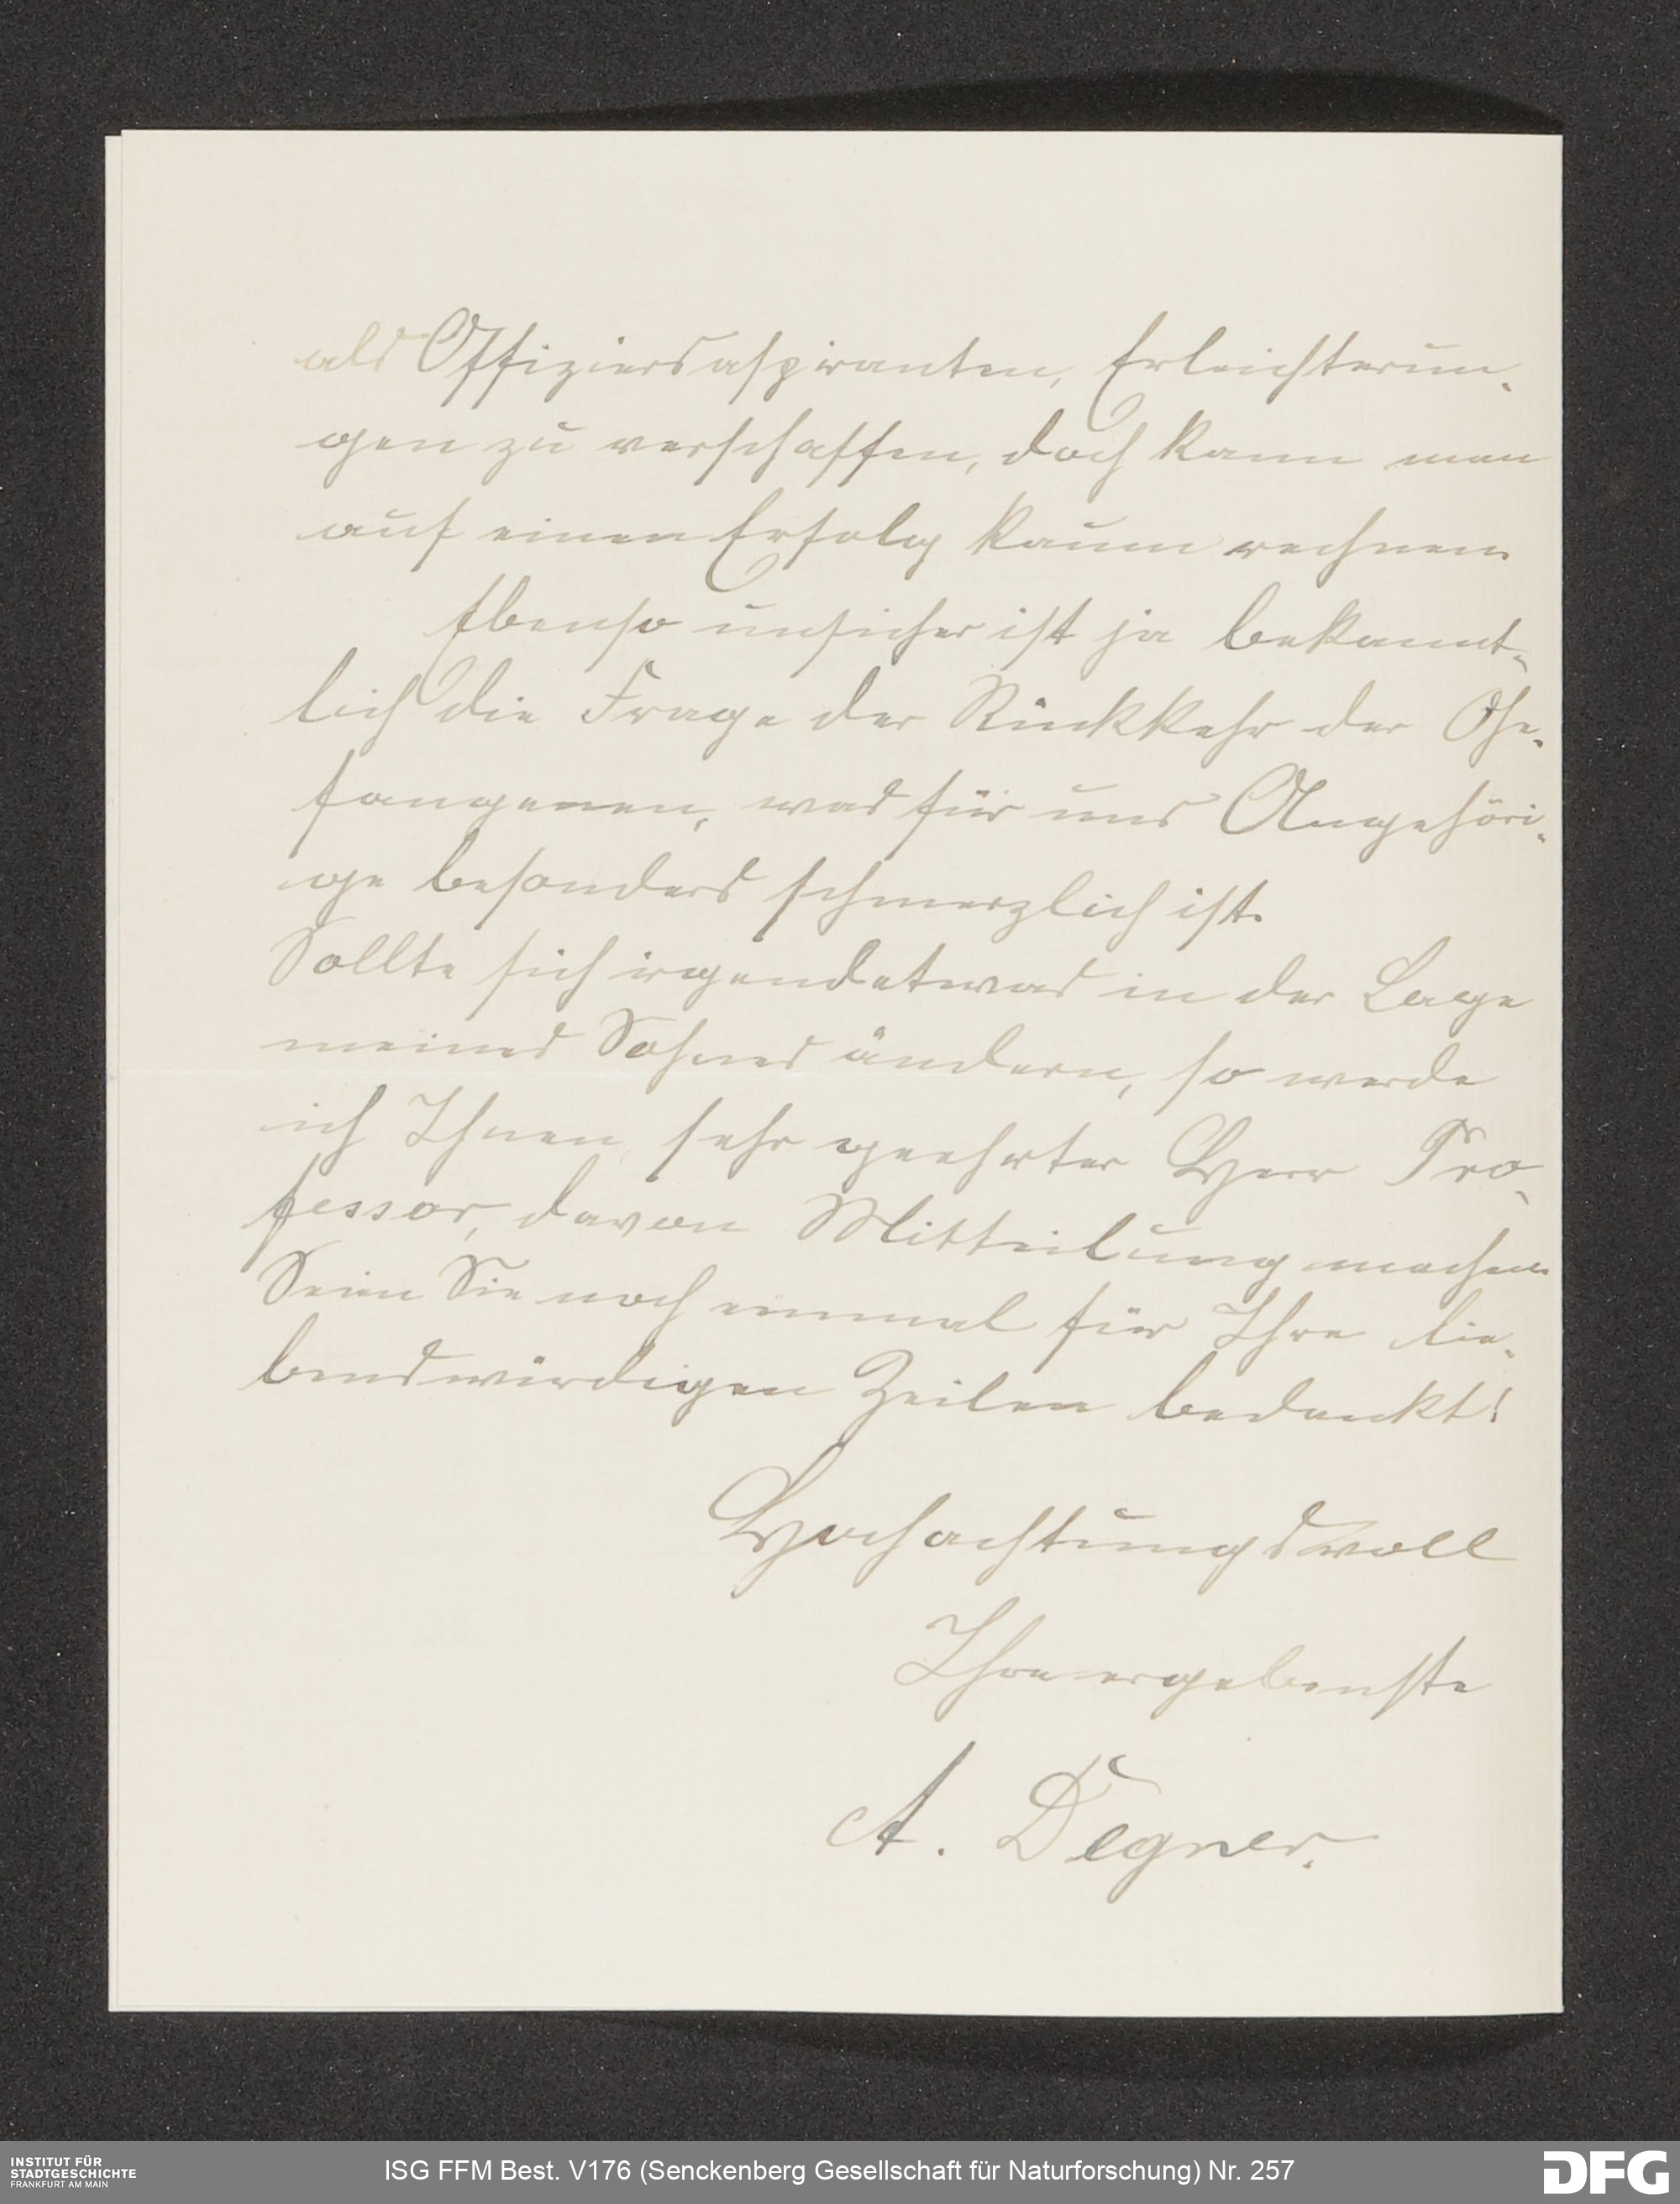 als Offiziersaspiranten, Erleichterun-
gen zu verschaffen, doch kann man
auf einen Erfolg kaum rechnen.
Ebenso unsicher ist ja bekannt-
lich die Frage der Rückkehr der Ge-
fangenen, was für uns Angehöri-
ge besonders schmerzlich ist.
Sollte sich irgendetwas in der Lage
meines Sohnes ändern, so werde
ich Ihnen, sehr geehrter Herr Pro-
fessor, davon Mitteilung machen.
Seien Sie noch einmal für Ihre lie-
benswürdigen Zeilen bedankt!
Hochachtungsvoll
Ihre ergebenste
A. Degner.
INSTITUT FÜR
STADTGESCHICHTE
FRANKFURT AM MAIN
ISG FFM Best. V176 (Senckenberg Gesellschaft für Naturforschung) Nr. 257
DFG